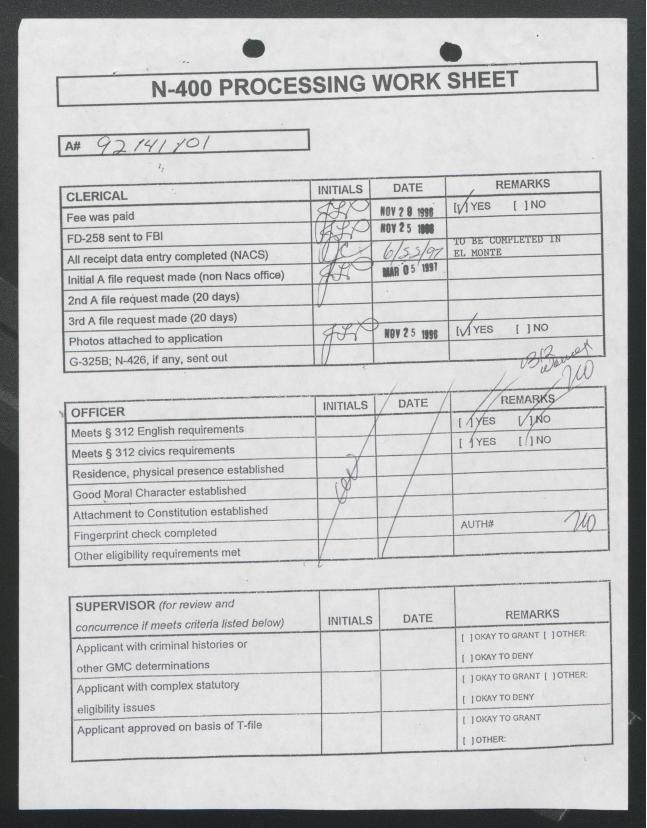 N-400 PROCESSING WORK SHEET
A#
CLERICAL INITIALS DATE REMARKS
Fee was paid NOV 28 1996 [✓] YES [ ] NO
FD-258 sent to FBI NOV 25 1996
All receipt data entry completed (NACS) TO BE COMPLETED IN
EL MONTE
Initial A file request made (non Nacs office) MAR 05 1997
2nd A file request made (20 days)
3rd A file request made (20 days)
Photos attached to application NOV 25 1996 [✓] YES [ ] NO
G-325B; N-426, if any, sent out
312
OFFICER INITIALS DATE REMARKS
Meets § 312 English requirements [ ] YES [ ] NO
Meets § 312 civics requirements [ ] YES [ ] NO
Residence, physical presence established
Good Moral Character established
Attachment to Constitution established
Fingerprint check completed AUTH#
Other eligibility requirements met
SUPERVISOR (for review and
concurrence if meets criteria listed below) INITIALS DATE REMARKS
Applicant with criminal histories or [ ] OKAY TO GRANT [ ] OTHER:
other GMC determinations [ ] OKAY TO DENY
Applicant with complex statutory [ ] OKAY TO GRANT [ ] OTHER:
eligibility issues [ ] OKAY TO DENY
Applicant approved on basis of T-file [ ] OKAY TO GRANT
[ ] OTHER: